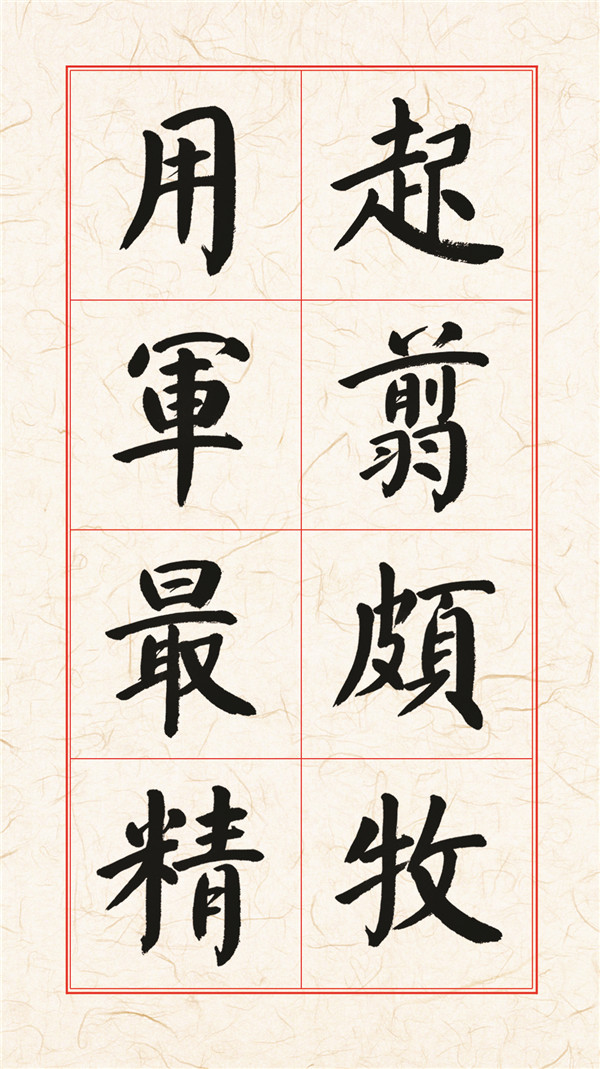 起翦頗牧
用軍最精